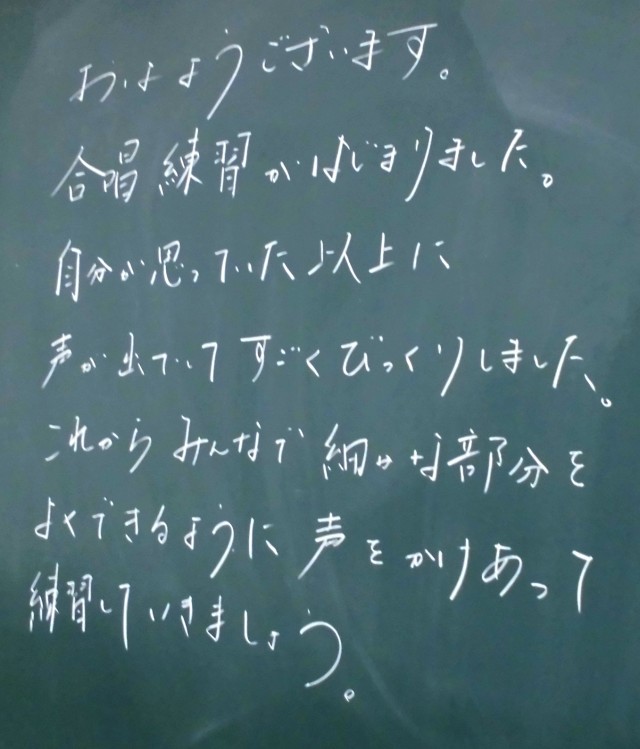 おはようございます。
合唱練習がはじまりました。
自分が思っていた以上に
声が出ていてすごくびっくりしました。
これからみんなで細かな部分を
よくできるように声をかけあって
練習していきましょう。